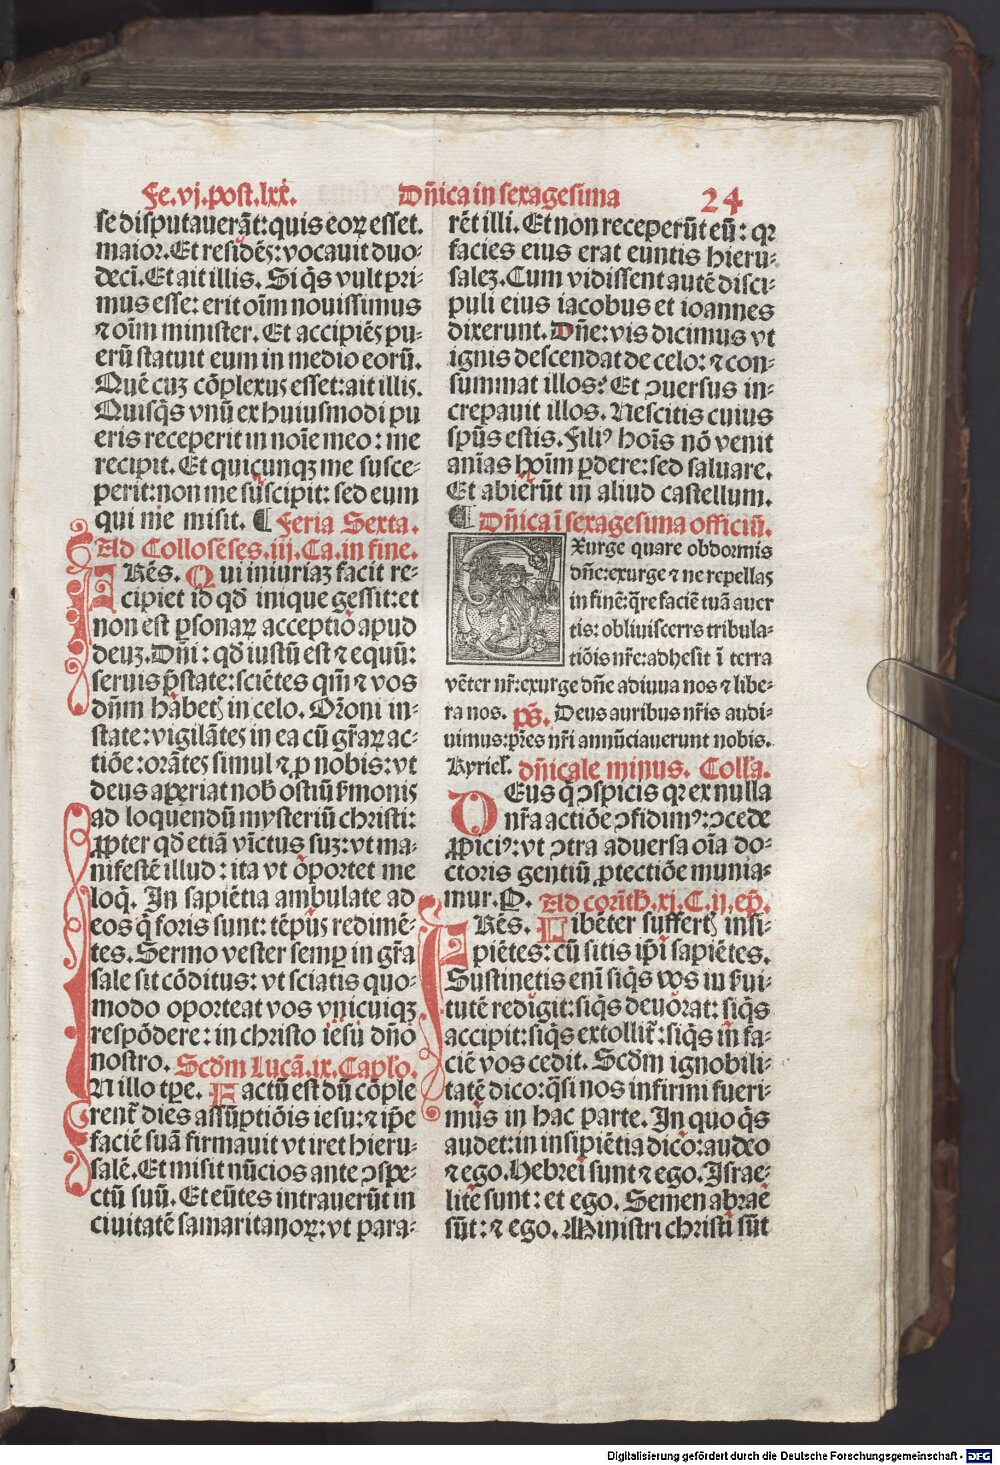 Fe.vj.post.lxx̄.
Dn̄ica in sexagesima
24
se disputauerāt: quis eoꝝ esset.
maior. Et residēs: vocauit duo-
decī. Et ait illis. Si q̄s vult pri-
mus esse: erit oīm nouissimus
⁊ oīm minister. Et accipiēs pu-
erū statuit eum in medio eorū.
Quē cuꝫ cōplexus esset: ait illis.
Quisq̄s vnū ex huiusmodi pu
eris receperit in noīe meo: me
recipit. Et quicunqꝫ me susce-
perit: non me suscipit: sed eum
qui me misit. ¶ Feria Sexta.
Ad Collosēses.iij.Ca.in fine.
FRēs. Qui iniuriaꝫ facit re-
cipiet id qd̄ inique gessit: et
non est ꝑsonaꝝ acceptio apud
deuꝫ. Dn̄i: qd̄ iustū est ⁊ equū:
seruis p̄state: sciētes qm̄ ⁊ vos
dn̄m habetꝭ in celo. Or̄oni in-
state: vigilātes in ea cū gr̄aꝝ ac-
tiōe: orātes simul ⁊ ꝓ nobis: vt
deus aperiat nob̄ ostiū ẜmonis
ad loquendū mysteriū christi:
ꝓpter qd̄ etiā vīctus suꝫ: vt ma-
nifestē illud: ita vt oportet me
loq̄. In sapiētia ambulate ad
eos q̄ foris sunt: tēpus redimē-
tes. Sermo vester semꝑ in gr̄a
sale sit cōditus: vt sciatis quo-
modo oporteat vos vnicuiqꝫ
respōdere: in christo iesu dn̄o
nostro. Scd̄m Lucā.ix.Caplo.
IN illo tꝑe. Factū est dū cōple
rent̄ dies assūptiōis iesu: ⁊ ip̄e
faciē suā firmauit vt iret hieru-
salē. Et misit nūcios ante ɔspe-
ctū suū. Et eūtes intrauerūt in
ciuitatē samaritanoꝝ: vt para-
rēt illi. Et non receperūt eū: qꝛ
facies eius erat euntis hieru-
saleꝫ. Cum vidissent autē disci-
puli eius iacobus et ioannes
dixerunt. Dn̄e: vis dicimus vt
ignis descendat de celo: ⁊ con-
summat illos? Et ɔuersus in-
crepauit illos. Nescitis cuius
sp̄us estis. Filiꝰ hoīs nō venit
anīas hoīm ꝑdere: sed saluare.
Et abierūt in aliud castellum.
¶ Dn̄ica ī sexagesima officiū.
EXurge quare obdormis
dn̄e: exurge ⁊ ne repellas
in finē: q̄re faciē tuā auer
tis: obliuiscerrs tribula-
tiōis nr̄e: adhesit ī terra
vēter nr̄: exurge dn̄e adiuua nos ⁊ libe-
ra nos. pš. Deus auribus nr̄is audi-
uimus: pr̄es nr̄i annūciauerunt nobis.
Kyriel. dn̄icale minus. Coll'a.
DEus q̄ ɔspicis qꝛ ex nulla
nr̄a actiōe ɔfidimꝰ: ɔcede
ꝓpiciꝰ: vt ɔtra aduersa oīa do-
ctoris gentiū ꝓtectiōe munia-
mur. P. Ad corīth.xj.C.ij.ep̄.
FRēs. Libēter suffertꝭ insi-
piētes: cū sitis ip̄i sapiētes.
Sustinetis enī siq̄s vos in ẜui-
tutē redigit: siq̄s deuorat: siq̄s
accipit: siq̄s extollit̄: siq̄s in fa-
ciē vos cedit. Scd̄m ignobili-
tatē dico: q̄si nos infirmi fueri-
mus in hac parte. In quo q̄s
audet: in insipiētia dico: audeo
⁊ ego. Hebrei sunt ⁊ ego. Israe-
lite sunt: et ego. Semen abrae
sūt: ⁊ ego. Ministri christi sūt
Digitalisierung gefördert durch die Deutsche Forschungsgemeinschaft - DFG